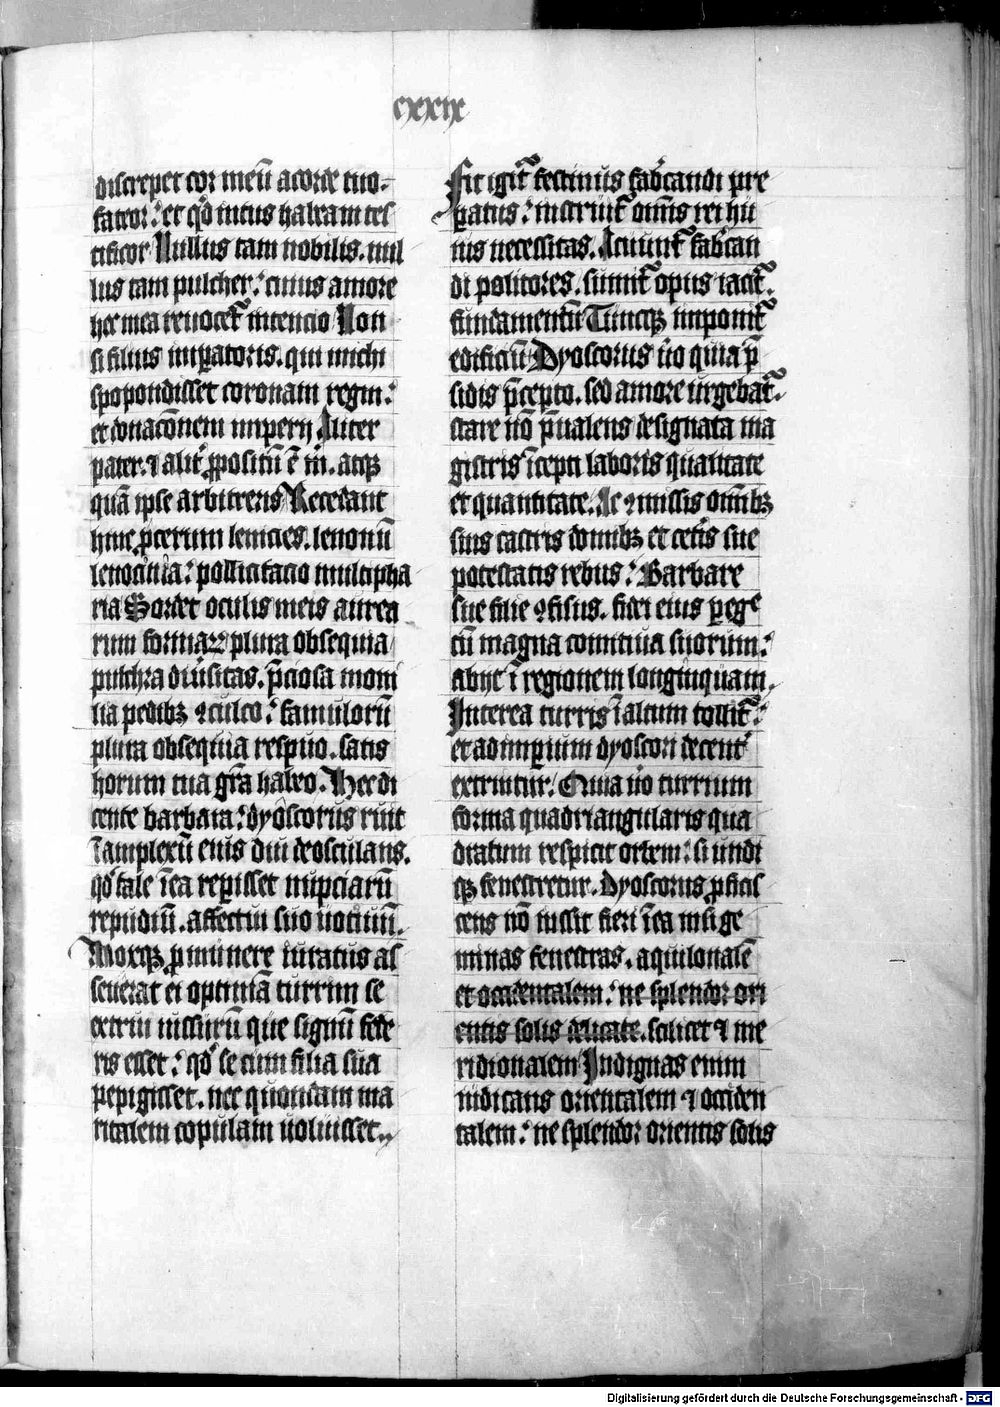 cxxix
discrepet cor meū a corde tuo.
fateor: et qd̄ intus habeam tes
tificor Nullus tam nobilis. nul
lus tam pulcher: cuius amore
hec mea reuocet᷑ intencio Non
si filius imꝑatoris. qui michi
spopondisset coronam regni:
et donacōnem imperij Iuter
pater. ⁊ alit᷑ ꝓpositū ē m̄. atqꝫ
quā ipse arbitreris Recedant
hinc ꝓcerum lenicies. lenonū
lenocinia: pollicitacio multipha
ria Sordet oculis meis aurea
rum formaꝝ plura obsequia
pulchra diūsitas. p̄ciosa moni
lia pedibꝫ ꝯculco: famulorū
plura obsequia respuo. satis
horum tua gr̄a habeo. Hec di
cente barbara: dyoscorus ruit
ī amplexū eius diu deosculans.
qd̄ tale ī ea reꝑisset nupciarū
repudiū. affectui suo uotiuū.
Moxqꝫ ꝓ munere iuratus as
seuerat ei optimā turrim se
extrui iussurū que signū fede
ris esset: qd̄ se cum filia sua
pepigisset. nec quondam ma
ritalem copulam uoluisset.
Fit igit᷑ festinus fab᷑candi pre
ꝑatus: instruit᷑ om̄is rei hu
ius necessitas. Acuunt᷑ fab᷑can
di politores. sumit᷑ opus iacit᷑.
fundamentū Tuncqꝫ imponit᷑
edificiū Dyoscorus ūo quia p̄
sidis p̄cepto. sed amore urgebat᷑.
stare nō p̄ualens designata ma
gistris īcepti laboris qualitate
et quantitate. Ac ꝯmissis om̄ibꝫ
suis castris domibꝫ et cet᷑is sue
potestatis rebus: Barbare
sue filie ꝯfisus. fidei eius ꝑege
cū magna comitiua suorum:
abijt ī regionem longinquam.
Interea turris ī altum tollit᷑:
et ad imꝑium dyoscori decent᷑
extruitur. Quia ūo turrium
forma quadriangularis qua
dratum respicit orbem: si undi
qꝫ fenestretur. Dyoscorus ꝓficis
cens nō iussit fieri ī ea nisi ge
minas fenestras. aquilonalē
et occidentalem: ne splendor ori
entis solis delicate. scilicet ⁊ me
ridionalem Indignas enim
iudicans orientalem ⁊ occiden
talem: ne splendor orientis solis
Digitalisierung gefördert durch die Deutsche Forschungsgemeinschaft - DFG